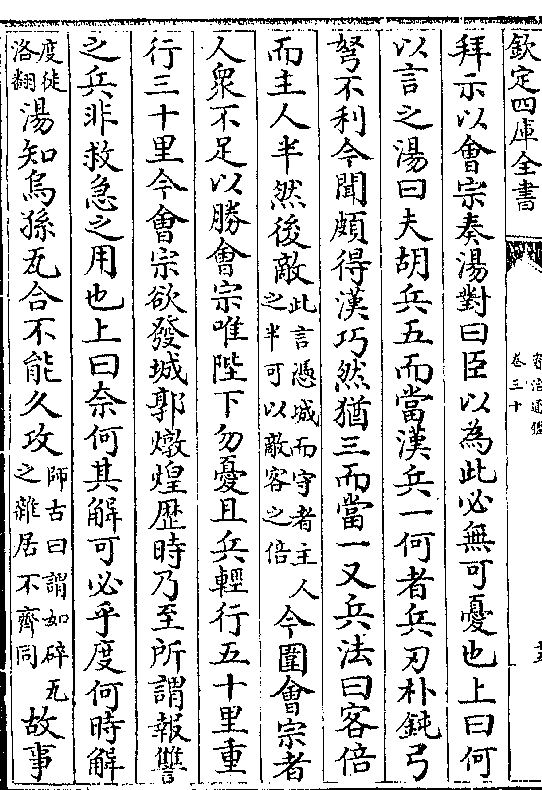 欽定四庫全書
資治通鑑
卷三十
拜示以會宗奏湯對曰臣以為此必無可憂也上曰何
以言之湯曰夫胡兵五而當漢兵一何者兵刃朴鈍弓
弩不利今聞頗得漢巧然猶三而當一又兵法曰客倍
而主人半然後敵此言憑城而守者主人之半可以敵客之倍今圍會宗者
人衆不足以勝會宗唯陛下勿憂且兵輕行五十里重
行三十里今會宗欲發城郭燉煌歴時乃至所謂報讐
之兵非救急之用也上曰奈何其解可必乎度何時解
度徒洛翻湯知烏孫瓦合不能久攻師古曰謂如碎瓦之雜居不齊同故事